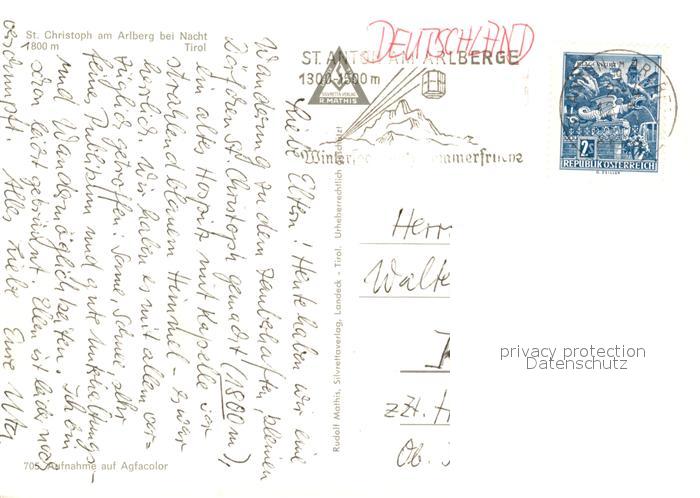 St. Christoph am Arlberg bei Nacht
1800 m Tirol
DEUTSCHLAND
ST. ANTON AM ARLBERGE
1300-1500 m
SILVRETTA VERLAG
R. MATHIS
REPUBLIK ÖSTERREICH
2 S
Liebe Eltern! Heute haben wir eine
Wanderung zu dem zauberhaften, kleinen
Dorf St. Christoph gemacht (1800 m),
ein altes Hospiz mit Kapelle vor
strahlend blauem Himmel - es war
herrlich. Wir haben es mit allem vor-
züglich getroffen: Sonne, Schnee, sehr
feine Publikum und gute Unterhaltungs-
und Wandermöglichkeiten. Ich bin
schon leicht gebräunt. Ellen ist leider noch
verschnupft. Alles Liebe Eure Uta.
Rudolf Mathis, Silvrettaverlag, Landeck - Tirol. Urheberrechtlich
Herr
Walte
zzt. H
Ob.
privacy protection
Datenschutz
705 Aufnahme auf Agfacolor